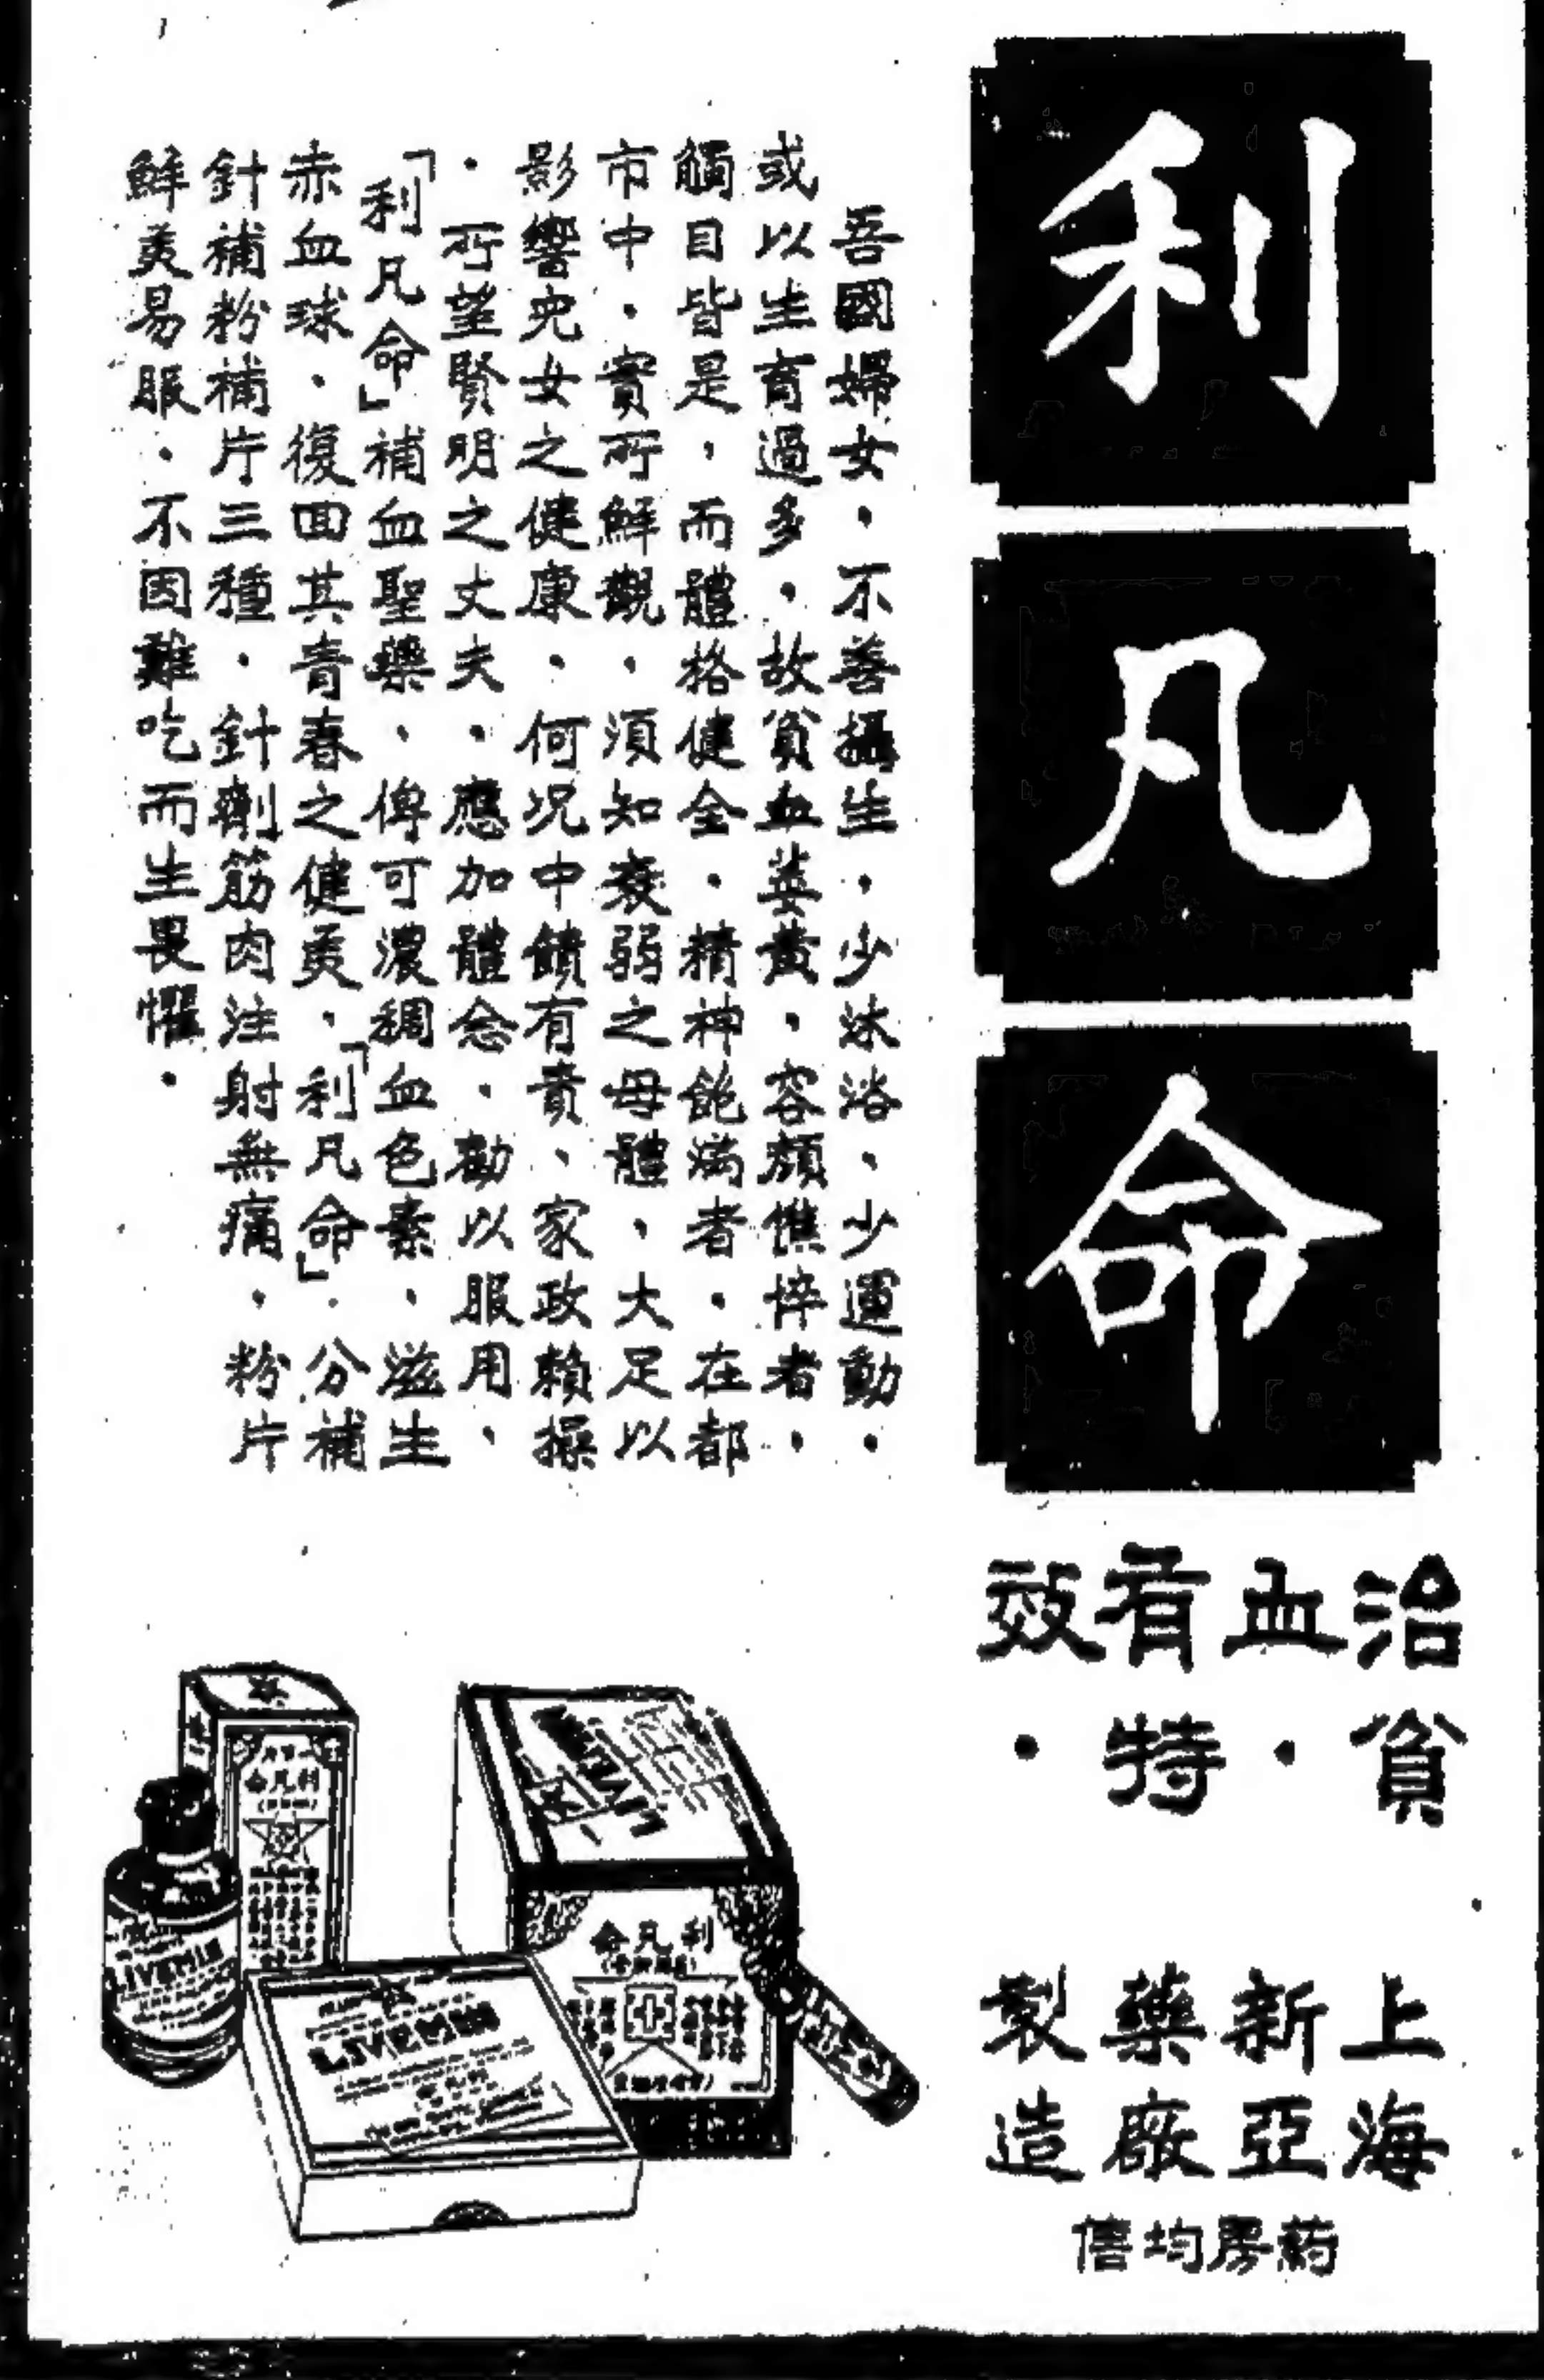 利凡命
治貧
血・
有特
效・
上海
新亞
藥廠
製造
药房均售
吾國婦女・不善攝生，少沐浴、少運動・
或以生育過多・故貧血萎黃・容顏憔悴者・
觸目皆是，而體格健全・精神飽滿者・在都
市中・實所鮮觀・須知衰弱之母體、大足以
影響兒女之健康・何况中饋有責、家政賴操
・所望賢明之丈夫・應加體念・勸以服用、
「利凡命」補血聖藥、俾可濃稠血色素、滋生
赤血球・復回其青春之健美・「利凡命」・分補
針補粉補片三種・針劑筋肉注射無痛・粉片
鮮美易服・不因難吃而生畏懼・
利凡命
LIVEMIN
利凡命
LIVEMIN